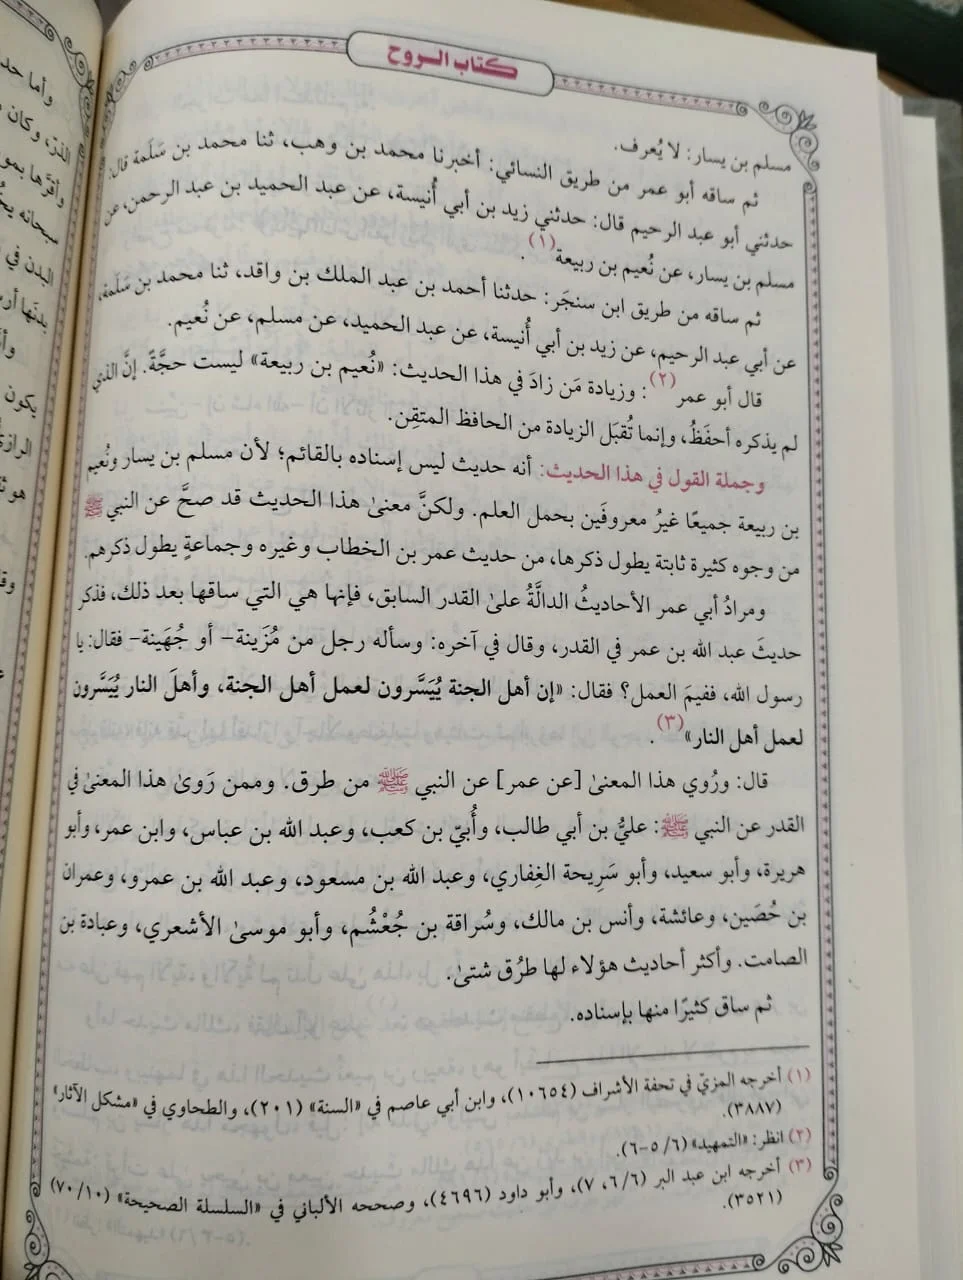 كتاب الروح
مسلم بن يسار: لا يُعرف.
ثم ساقه أبو عمر من طريق النسائي: أخبرنا محمد بن وهب، ثنا محمد بن سَلَمة قال:
حدثني أبو عبد الرحيم قال: حدثني زيد بن أبي أُنيسة، عن عبد الحميد بن عبد الرحمن، عن
مسلم بن يسار، عن نُعيم بن ربيعة(١).
ثم ساقه من طريق ابن سنجَر: حدثنا أحمد بن عبد الملك بن واقد، ثنا محمد بن سَلَمة،
عن أبي عبد الرحيم، عن زيد بن أبي أُنيسة، عن عبد الحميد، عن مسلم، عن نُعيم.
قال أبو عمر(٢): وزيادة مَن زادَ في هذا الحديث: «نُعيم بن ربيعة» ليست حجَّةً. إنَّ الذي
لم يذكره أحفَظُ، وإنما تُقبَل الزيادة من الحافظ المتقِن.
وجملة القول في هذا الحديث: أنه حديث ليس إسناده بالقائم؛ لأن مسلم بن يسار ونُعيم
بن ربيعة جميعًا غيرُ معروفَين بحمل العلم. ولكنَّ معنىٰ هذا الحديث قد صحَّ عن النبي ﷺ
من وجوه كثيرة ثابتة يطول ذكرها، من حديث عمر بن الخطاب وغيره وجماعةٍ يطول ذكرهم.
ومرادُ أبي عمر الأحاديثُ الدالَّةُ علىٰ القدر السابق، فإنها هي التي ساقها بعد ذلك، فذكر
حديثَ عبد الله بن عمر في القدر، وقال في آخره: وسأله رجل من مُزَينة- أو جُهَينة- فقال: يا
رسول الله، ففيمَ العمل؟ فقال: «إن أهل الجنة يُيَسَّرون لعمل أهل الجنة، وأهلَ النار يُيَسَّرون
لعمل أهل النار»(٣).
قال: ورُوي هذا المعنىٰ [عن عمر] عن النبي ﷺ من طرق. وممن رَوىٰ هذا المعنىٰ في
القدر عن النبي ﷺ: عليُّ بن أبي طالب، وأُبيّ بن كعب، وعبد الله بن عباس، وابن عمر، وأبو
هريرة، وأبو سعيد، وأبو سَرِيحة الغِفاري، وعبد الله بن مسعود، وعبد الله بن عمرو، وعمران
بن حُصَين، وعائشة، وأنس بن مالك، وسُراقة بن جُعْشُم، وأبو موسىٰ الأشعري، وعبادة بن
الصامت. وأكثر أحاديث هؤلاء لها طرُق شتىٰ.
ثم ساق كثيرًا منها بإسناده.
(١) أخرجه المزيّ في تحفة الأشراف (١٠٦٥٤)، وابن أبي عاصم في «السنة» (٢٠١)، والطحاوي في «مشكل الآثار»
(٣٨٨٧).
(٢) انظر: «التمهيد» (٦/ ٥-٦).
(٣) أخرجه ابن عبد البر (٦/٦، ٧)، وأبو داود (٤٦٩٦)، وصححه الألباني في «السلسلة الصحيحة» (٧٠/١٠)
(٣٥٢١).